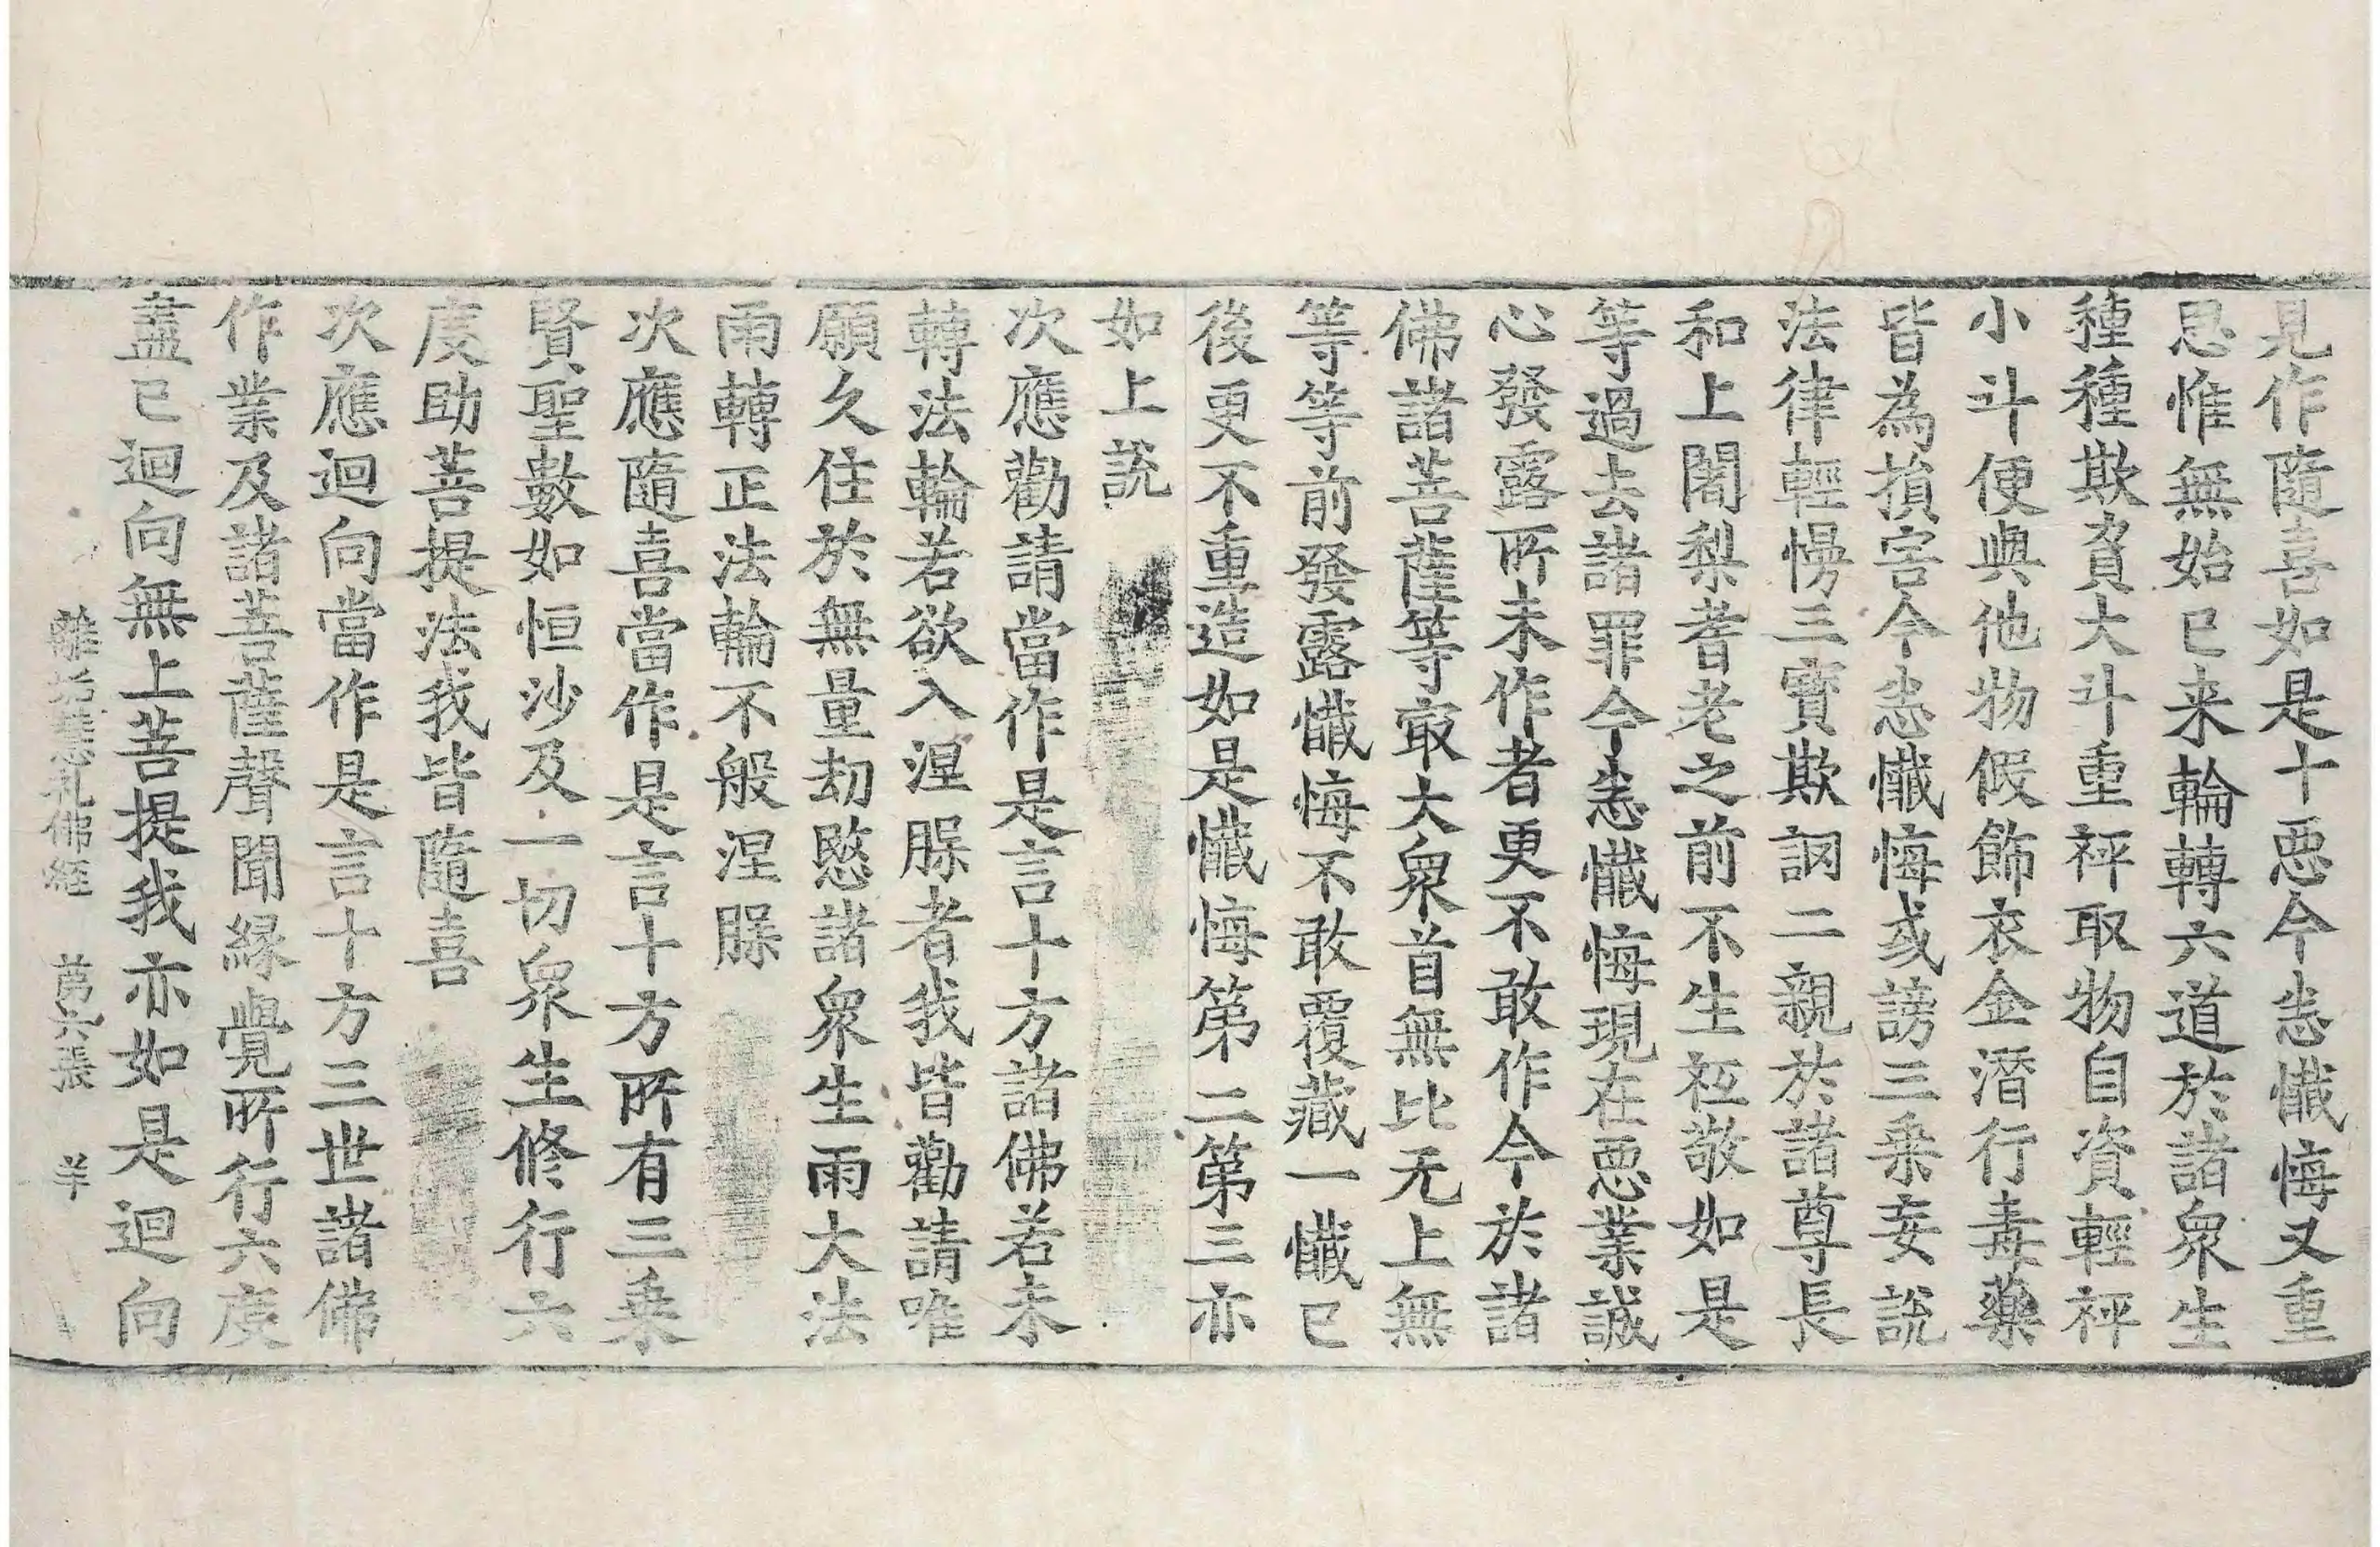 見作隨喜如是十惡今恚懺悔又重
思惟無始已来輪轉六道於諸衆生
種種欺負大斗重秤取物自資輕秤
小斗便與他物假飾衣金潛行毒藥
皆為損害今恚懺悔或謗三乗妄說
法律輕慢三寶欺誷二親於諸尊長
和上闍梨耆老之前不生袛敬如是
等過去諸罪今恚懺悔現在惡業誠
心發露所未作者更不敢作今於諸
佛諸菩薩等㝡大衆首無比无上無
等等前發露懺悔不敢覆藏一懺已
後更不重造如是懺悔第二第三亦
如上說
次應勸請當作是言十方諸佛若未
轉法輪若欲入涅槃者我皆勸請唯
願久住於無量劫愍諸衆生雨大法
雨轉正法輪不般涅槃
次應隨喜當作是言十方所有三乗
賢聖數如恒沙及一切衆生修行六
度助菩提法我皆隨喜
次應迴向當作是言十方三世諸佛
作業及諸菩薩聲聞緣覺所行六度
盡已迴向無上菩提我亦如是迴向
離垢慧礼佛経 苐六張 羊